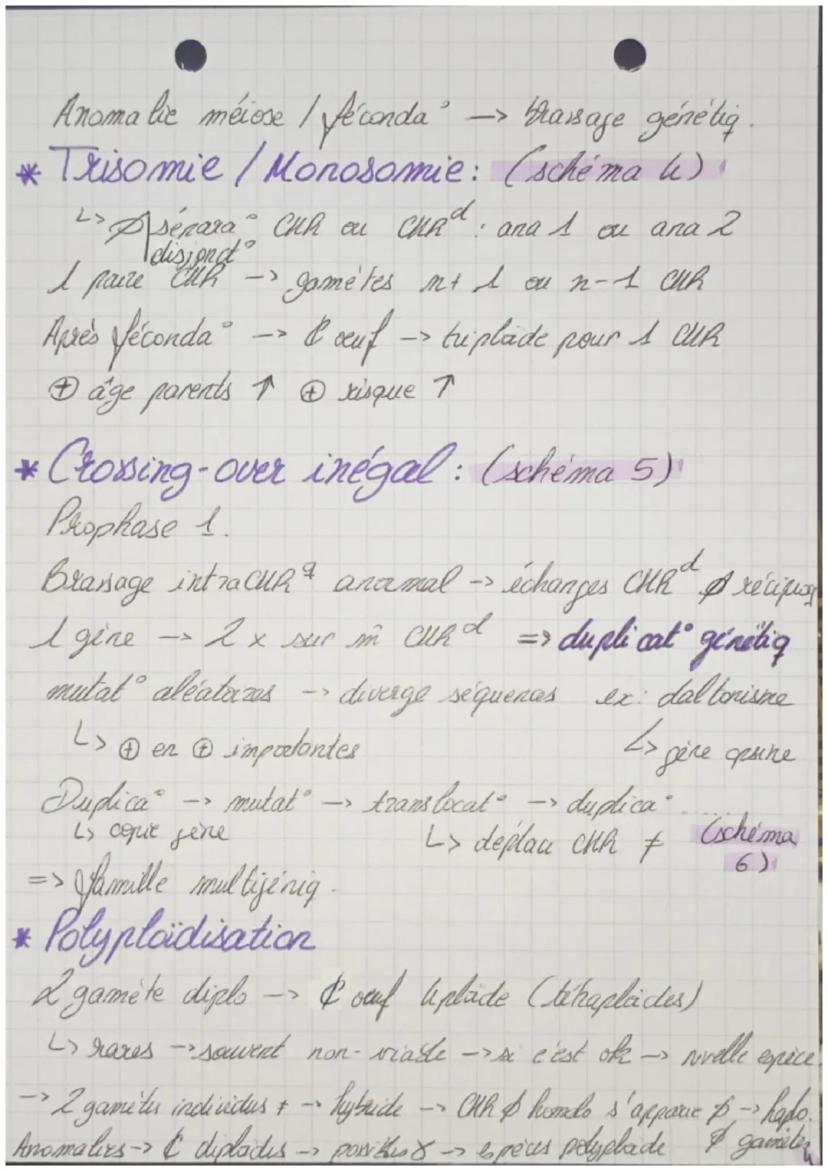 Anomalie méiose / féconda° -> brassage génétiq.
* Trisomie / Monosomie : (schéma 4)
↳ ∅ sépara° CHR ou CHRᵈ : ana 1 ou ana 2
disjonct°
1 paire CHR -> gamètes n+1 ou n-1 CHR
Après féconda° -> ¢ oeuf -> triploïde pour 1 CHR
⊕ âge parents ↑ ⊕ risque ↑
* Crossing-over inégal : (schéma 5)
Prophase 1.
Brassage intraCHRq anormal -> échanges CHRᵈ ∅ réciproq
1 gène -> 2 x sur m̂ CHRᵈ => duplicat° génétiq
mutat° aléatoires -> diverge séquences ex: daltonisme
↳ ⊕ en ⊕ importantes ↳ gène opsine
Duplica° -> mutat° -> translocat° -> duplica° .....
↳ copie gène ↳ déplace CHR ≠ (schéma 6)
=> famille multigéniq.
* Polyploïdisation
2 gamète diplo -> ¢ oeuf 4ploïde (tétraploïdes)
↳ rares -> souvent non-viable -> si c'est ok -> nvelle espèce
-> 2 gamètes individus ≠ -> hybride -> CHR ∅ homolo s'apparie ∅ -> haplo.
Anomalies -> ¢ diploïdes -> possible -> espèces polyploïde ∅ gamètes